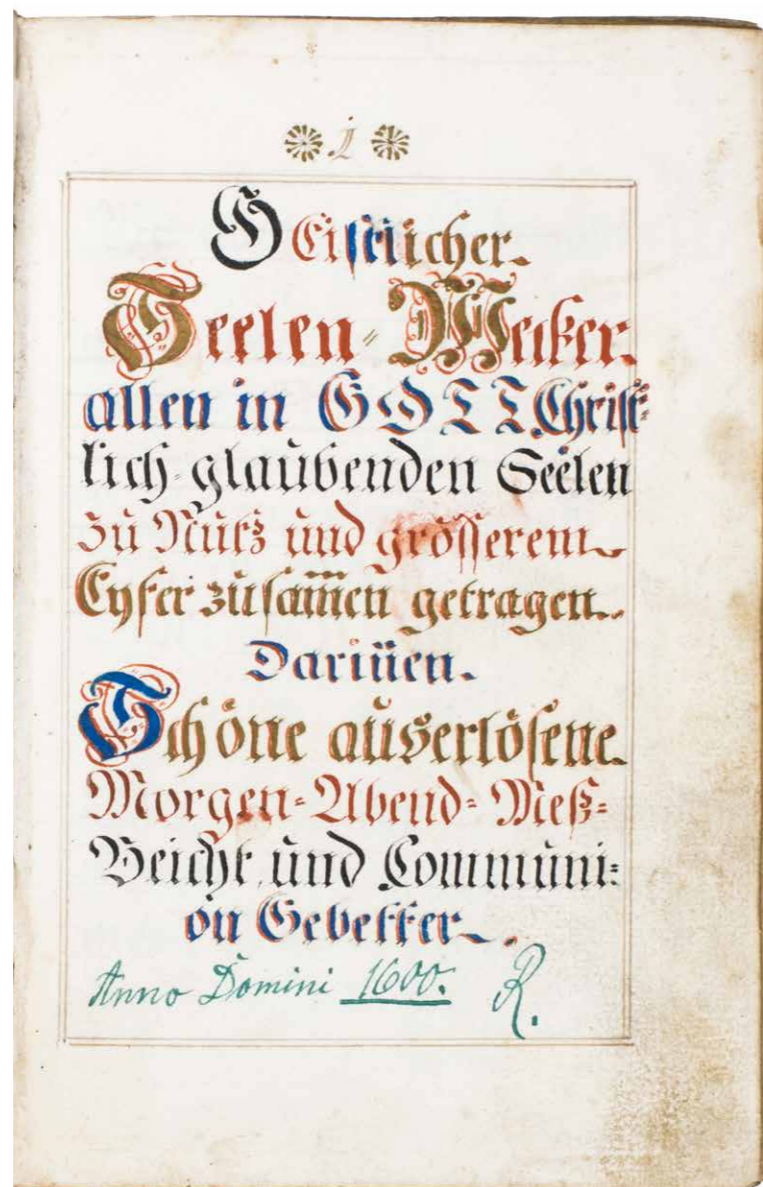 1
GEistlicher.
Seelen=Wecker.
allen in GOTT Christ=
lich=glaubenden Seelen
zu Nutz und grösserem
Eyfer zusam̅en getragen.
Darin̅en.
Schöne auserlösene
Morgen=Abend=Meß=
Beicht und Communi=
on Gebetter.
Anno Domini 1600. R.